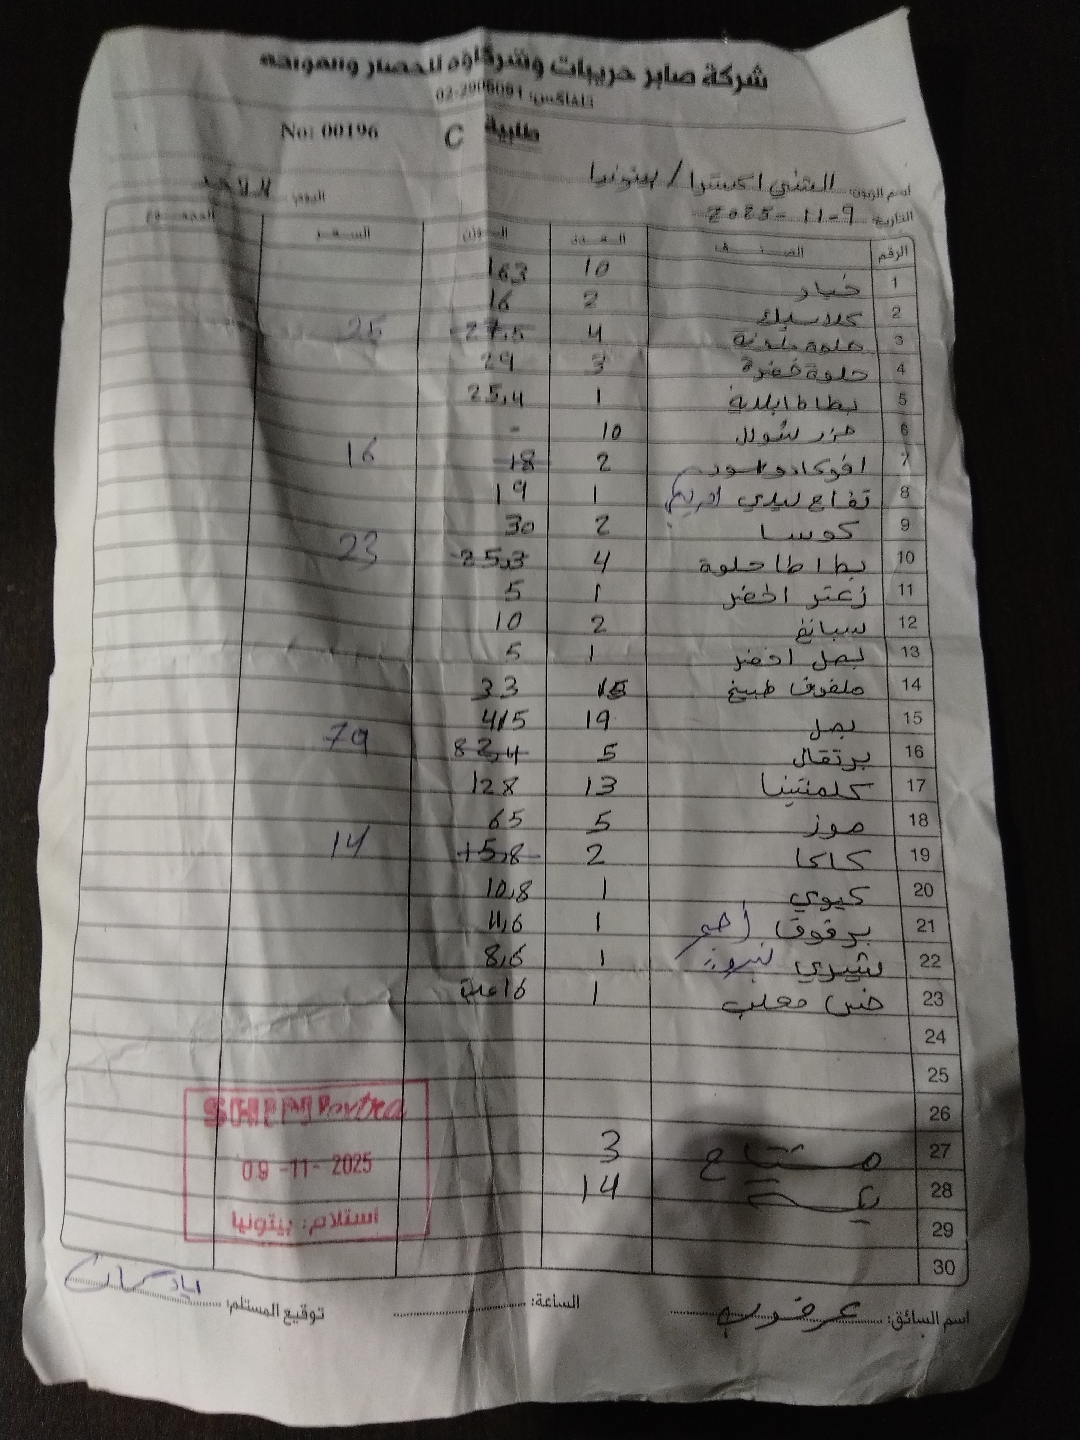 شركة صابر حريبات وشركاؤه للخضار والفواكه
تلفاكس: 02-2906091
طلبية C No: 00196
اسم الزبون: الشني اكسترا / بيتونيا اليوم: الاحد
التاريخ: 9-11-2025
الرقم الصنف العدد الوزن السعر المجموع
1 خيار 10 163
2 كلاسيك 2 16
3 حلوة ملونة 4 27,5 25
4 حلوة خضرة 3 29
5 بطاطا بلدية 1 25,4
6 جزر شوال 10 -
7 افوكادو اسود 2 18 16
8 تفاح ليدي 1 19
9 كوسا 2 30
10 بطاطا حلوة 4 25,3 23
11 زعتر اخضر 1 5
12 سبانخ 2 10
13 بصل اخضر 1 5
14 ملفوف طبيخ 15 33
15 بصل 19 415
16 برتقال 5 82,4 79
17 كلمنتينا 13 128
18 موز 5 65
19 كاكا 2 15,8 14
20 كيوي 1 10,8
21 برقوق احمر 1 11,6
22 شيري 1 8,6
23 خس معلب 1 16 علبة
24
25
26
27 مشتاح 3
28 14
29
30
SHINI Extra
09-11-2025
استلام: بيتونيا
اسم السائق: عرقوب الساعة: توقيع المستلم: